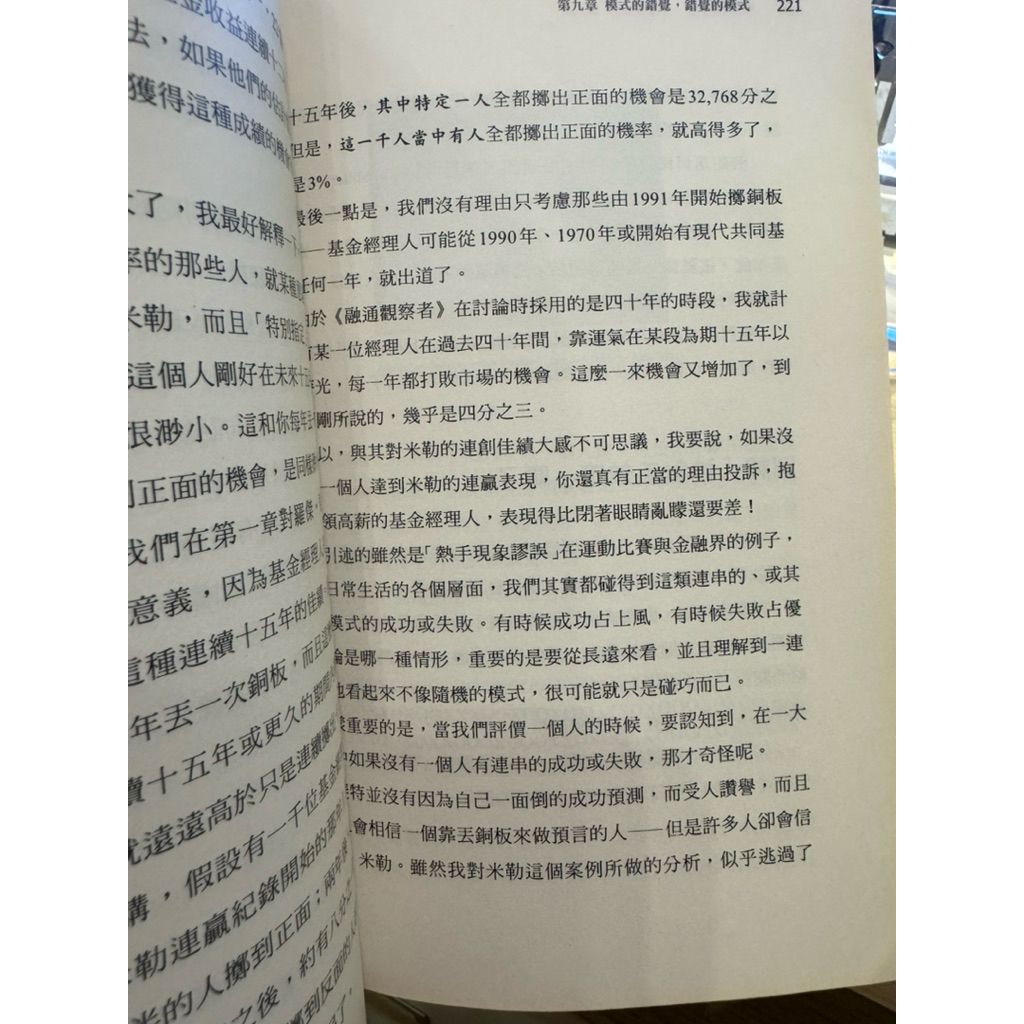 金收益連續十
法，如果他們的
獲得這種成績的
了，我最好解釋一
率的那些人，就某種
米勒，而且「特別指定
這個人剛好在未來十五
很渺小。這和你每年丟
正面的機會，是同樣
我們在第一章對羅傑
意義，因為基金經理人
這種連續十五年的佳績
年丟一次銅板，而且
續十五年或更久的期間
就遠遠高於只是連續擲出
講，假設有一千位基金
勒連贏紀錄開始的那年
的人擲到正面；兩年後
之後，約有八分之
第九章 模式的錯覺，錯覺的模式 221
十五年後，其中特定一人全都擲出正面的機會是32,768分之
但是，這一千人當中有人全都擲出正面的機率，就高得多了，
是3%。
最後一點是，我們沒有理由只考慮那些由1991年開始擲銅板
——基金經理人可能從1990年、1970年或開始有現代共同基
任何一年，就出道了。
於《融通觀察者》在討論時採用的是四十年的時段，我就計
某一位經理人在過去四十年間，靠運氣在某段為期十五年以
光，每一年都打敗市場的機會。這麼一來機會又增加了，到
剛所說的，幾乎是四分之三。
以，與其對米勒的連創佳績大感不可思議，我要說，如果沒
一個人達到米勒的連贏表現，你還真有正當的理由投訴，抱
領高薪的基金經理人，表現得比閉著眼睛亂矇還要差！
引述的雖然是「熱手現象謬誤」在運動比賽與金融界的例子，
日常生活的各個層面，我們其實都碰得到這類連串的、或其
模式的成功或失敗。有時候成功占上風，有時候失敗占優
論是哪一種情形，重要的是要從長遠來看，並且理解到一連
他看起來不像隨機的模式，很可能就只是碰巧而已。
重要的是，當我們評價一個人的時候，要認知到，在一大
中如果沒有一個人有連串的成功或失敗，那才奇怪呢。
特並沒有因為自己一面倒的成功預測，而受人讚譽，而且
會相信一個靠丟銅板來做預言的人——但是許多人卻會信
米勒。雖然我對米勒這個案例所做的分析，似乎逃過了